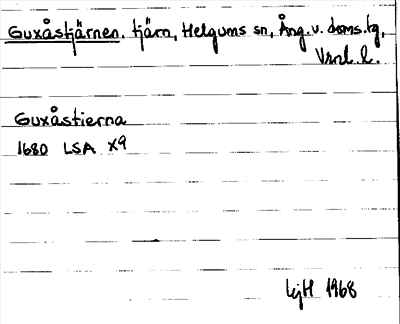 Guxåstjärnen. tjärn, Helgums sn, Ång. v. doms.tg,
Vrnl. l.
Guxåstierna
1680 LSA X9
LjH 1968